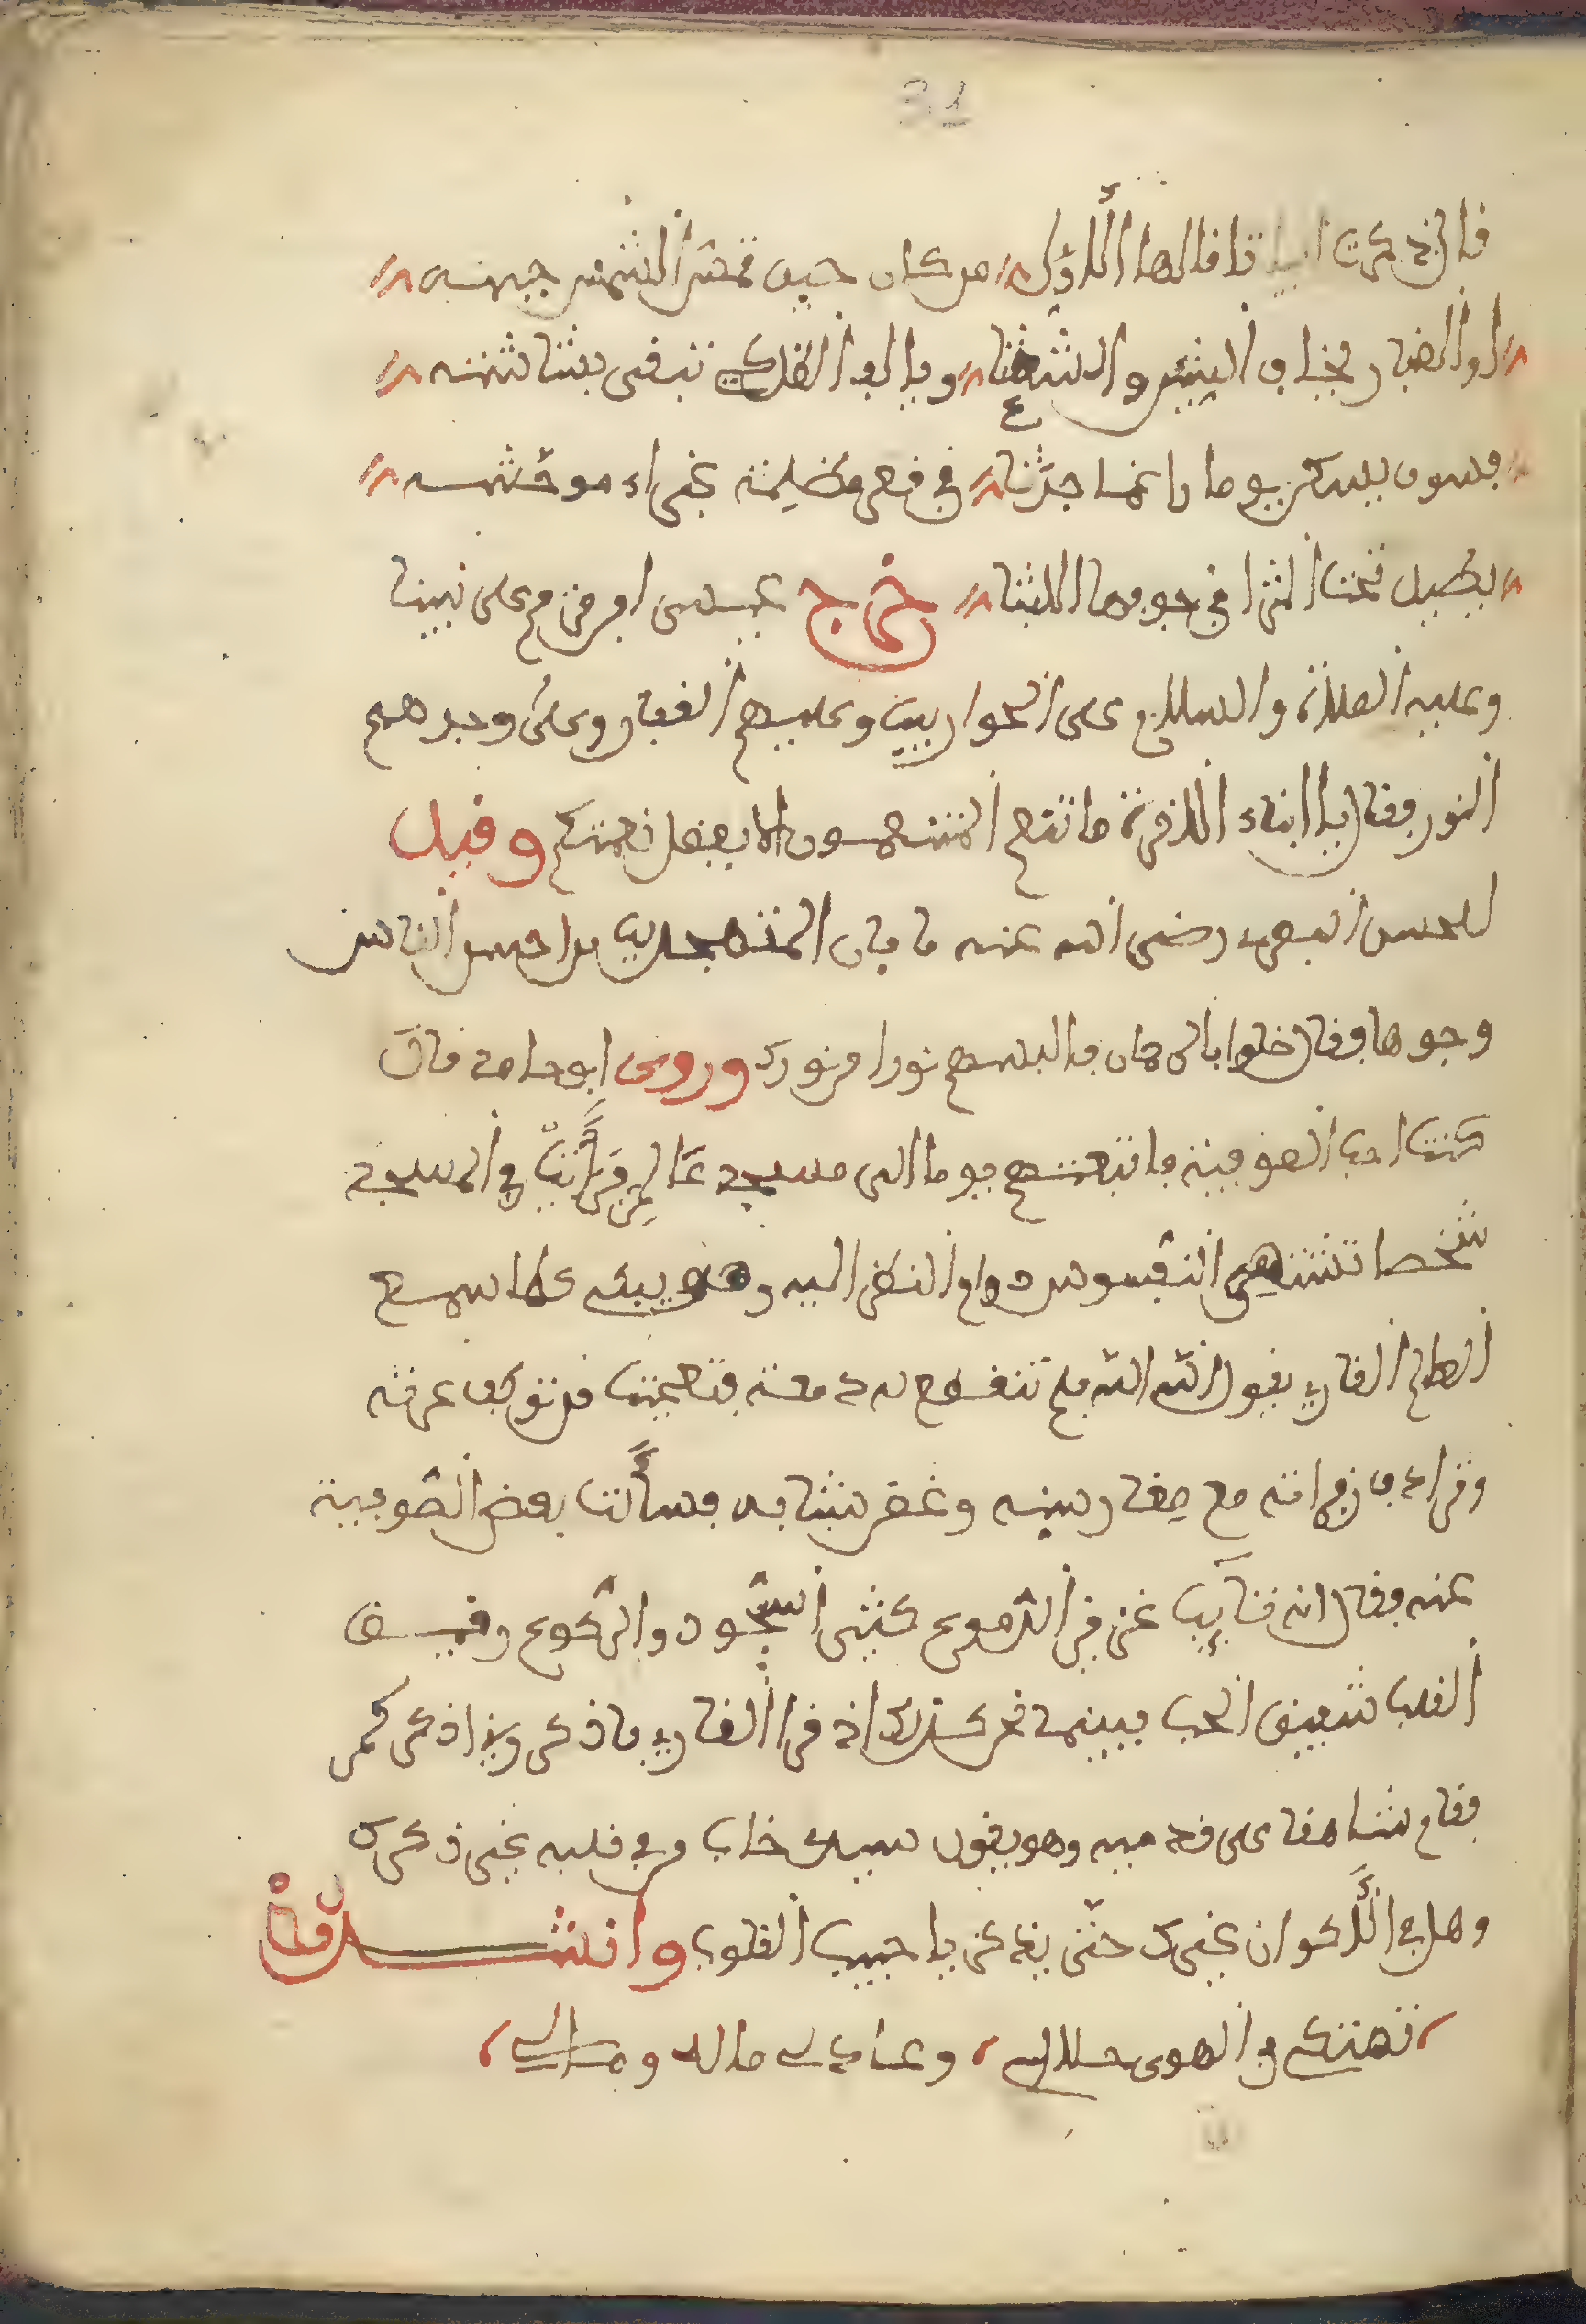 31
قال ذكرت ابياتا قالها الاول من كان حين تمس الشمس جبهته
او الغبار يخاف الشين والشعثا ويالف الظل كي تبقى بشاشته
فسوف يسكن يوما راغما جدثا في قعر مظلمة غبراء موحشه
يطيل تحت الثرا في جوفها اللبثا خرج عيسى ابن مريم على نبينا
وعليه الصلاة والسلام على الحواريين وعليهم الغبار وعلى وجوههم
النور فقال يا ابناء الاخرة ما تنعم المتنعمون الا بفضل نعمتكم وقيل
للحسن البصري رضي الله عنه ما بال المتهجدين من احسن الناس
وجوها فقال خلوا بالرحمان فالبسهم نورا من نوره وروى ابو حامد قال
كنت احب الصوفية فاتبعتهم يوما الى مسجد عالم فرأيت في المسجد
شخصا تشتهي النفوس دوام النظر اليه وهو يبكي كلما سمع
الطالب القارئ يقول الله الله فلم تنقطع له دمعة فتعجبت من توكف عبرته
وترادف زفراته مع صغار سنه وغض شبابه فسألت بعض الصوفية
عنه فقال انه تائب غزير الدموع كثير السجود والركوع رقيق
القلب شفيق الحب فبينما نحن كذلك اذ قرا القارئ فاذكروني اذكركم
فقام شاهقا على قدميه وهو يقول سيدي خاب من في قلبه غير ذكرك
وهل في الاكوان غيرك حتى يذكر يا حبيب القلوب وانشدوا
تهتكي في الهوى حلالي وعاذلي ماله ومالي